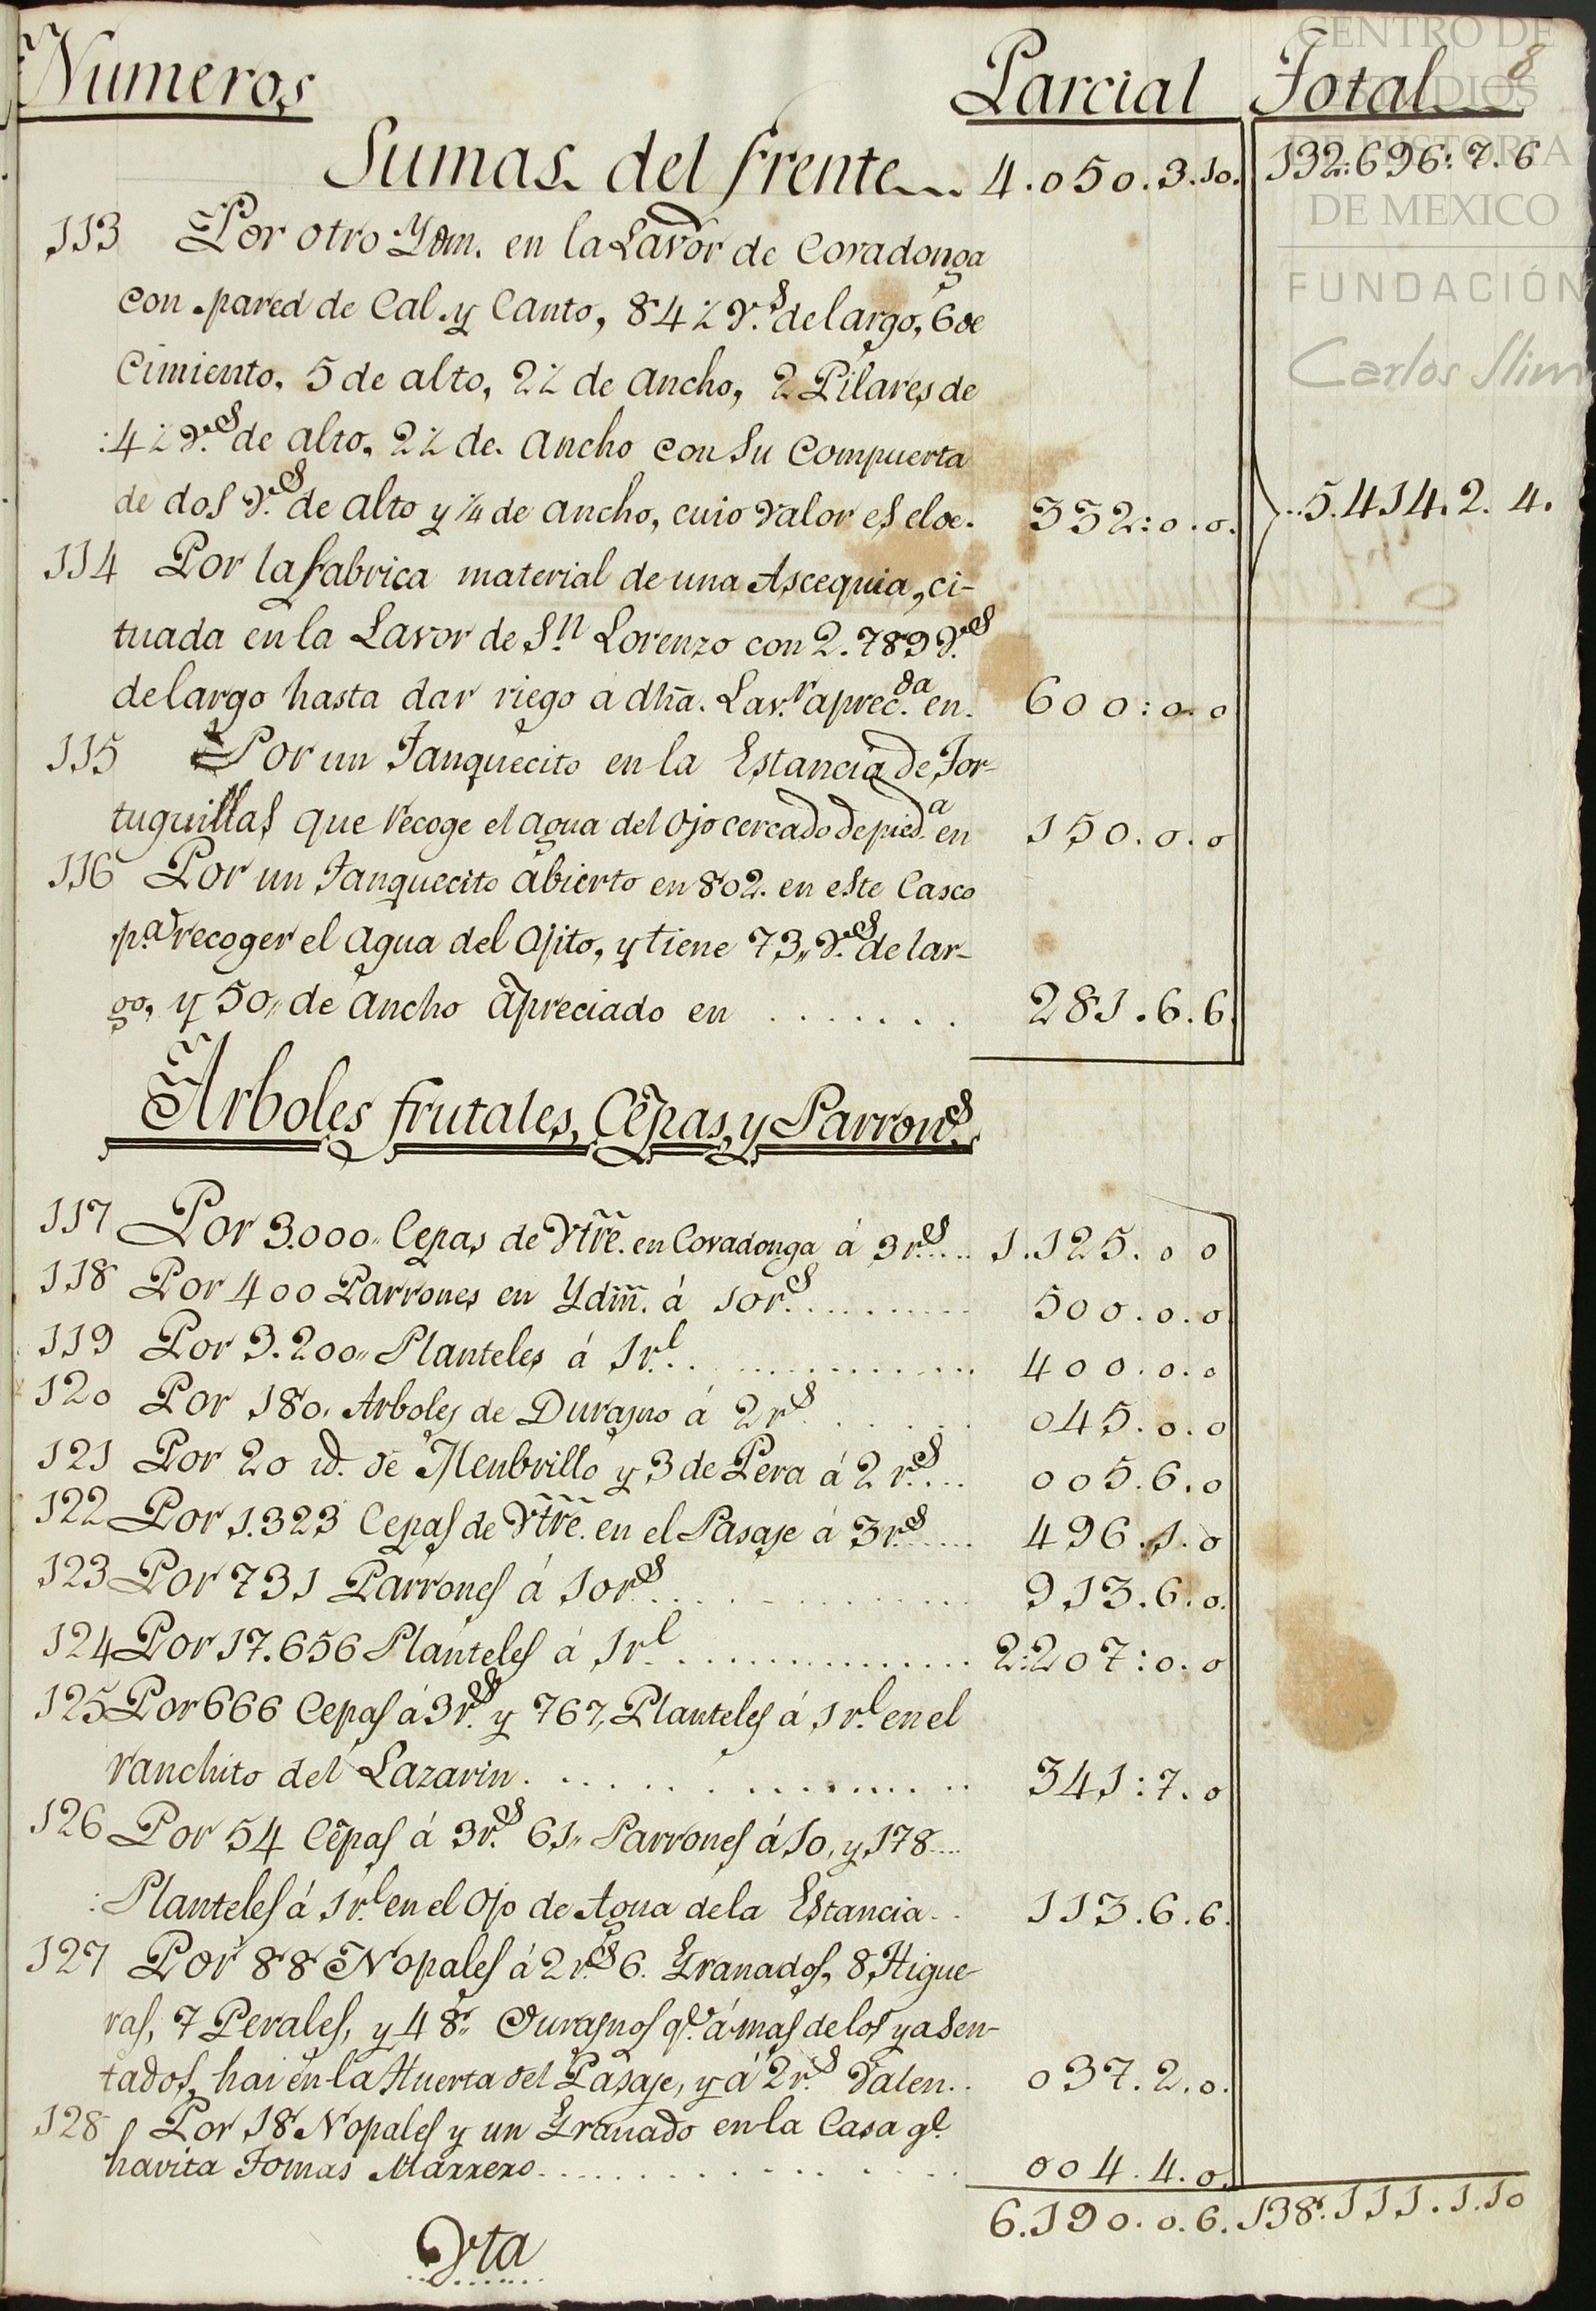 Numeros Parcial Total 8
Sumas del frente 4.050.3.10. 132:696:7.6
113 Por otro Ydm. en la Lavor de Covadonga
con pared de Cal y Canto, 84½ v.s de largo, 6 de
Cimiento, 5 de alto, 2½ de ancho, 2 Pilares de
4½ v.s de alto, 2½ de ancho con Su Compuerta
de dos v.s de alto y ¼ de ancho, cuio valor es el de. 332:0.0. ..5.414.2.4.
114 Por la fabrica material de una Ascequia, ci-
tuada en la Lavor de S.n Lorenzo con 2.789 v.s
de largo hasta dar riego a dha. Lav.r aprec.da en. 600:0.0
115 Por un Tanquecito en la Estancia de Tor-
tuguillas que recoge el agua del Ojo cercado de pied.a en 150.0.0
116 Por un Tanquecito abierto en 802. en este Casco
p.a recoger el agua del Ojito, y tiene 73,, v.s de lar-
go, y 50,, de ancho apreciado en ....... 281.6.6.
Arboles frutales, Cepas, y Parron.s
117 Por 3.000,, Cepas de Vtre. en Covadonga á 3 r.s.... 1.125.0 0
118 Por 400 Parrones en Ydm. á 10 r.s......... 500.0.0
119 Por 3.200,, Planteles á 1 r.l.............. 400.0.0
120 Por 180. Arboles de Durasno á 2 r.s...... 045.0.0
121 Por 20 id. de Menbrillo y 3 de Pera á 2 r.s... 005.6.0
122 Por 1.323 Cepas de Vtre. en el Pasaje á 3 r.s..... 496.1.0
123 Por 731 Parrones á 10 r.s.............. 913.6.0.
124 Por 17.656 Planteles á 1 r.l............... 2:207:0.0
125 Por 666 Cepas á 3 r.s y 767,, Planteles á 1 r.l en el
ranchito del Lazarin............... 341:7.0
126 Por 54 Cepas á 3 r.s 61,, Parrones á 10, y 178....
Planteles á 1 r.l en el Ojo de Agua de la Estancia.. 113.6.6.
127 Por 88 Nopales á 2 r.s 6. Granados, 8, Higue-
ras, 7 Perales, y 48,, Durasnos q.e á mas de los ya sen-
tados, hai en la Huerta del Pasaje, y á 2 r.s valen.. 037.2.0.
128 Por 18 Nopales y un Granado en la Casa q.e
havita Tomas Marrero............. 004.4.0.
6.190.0.6. 138.111.1.10
Vta
CENTRO DE
ESTUDIOS
DE HISTORIA
DE MEXICO
FUNDACIÓN
Carlos Slim